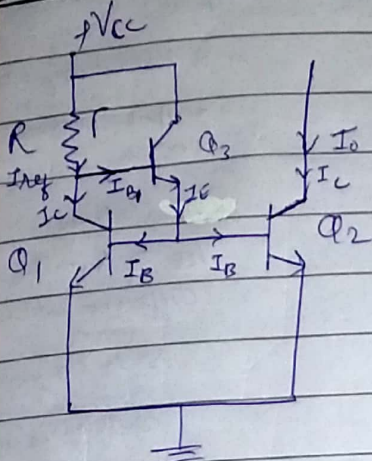 +Vcc
R
Q3
Iref
IB1
IE
I0
IC
IC
Q1
Q2
IB
IB